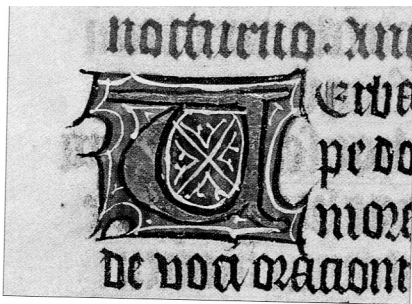 nocturno. An
VErba
pe do
more
de voci oracioni